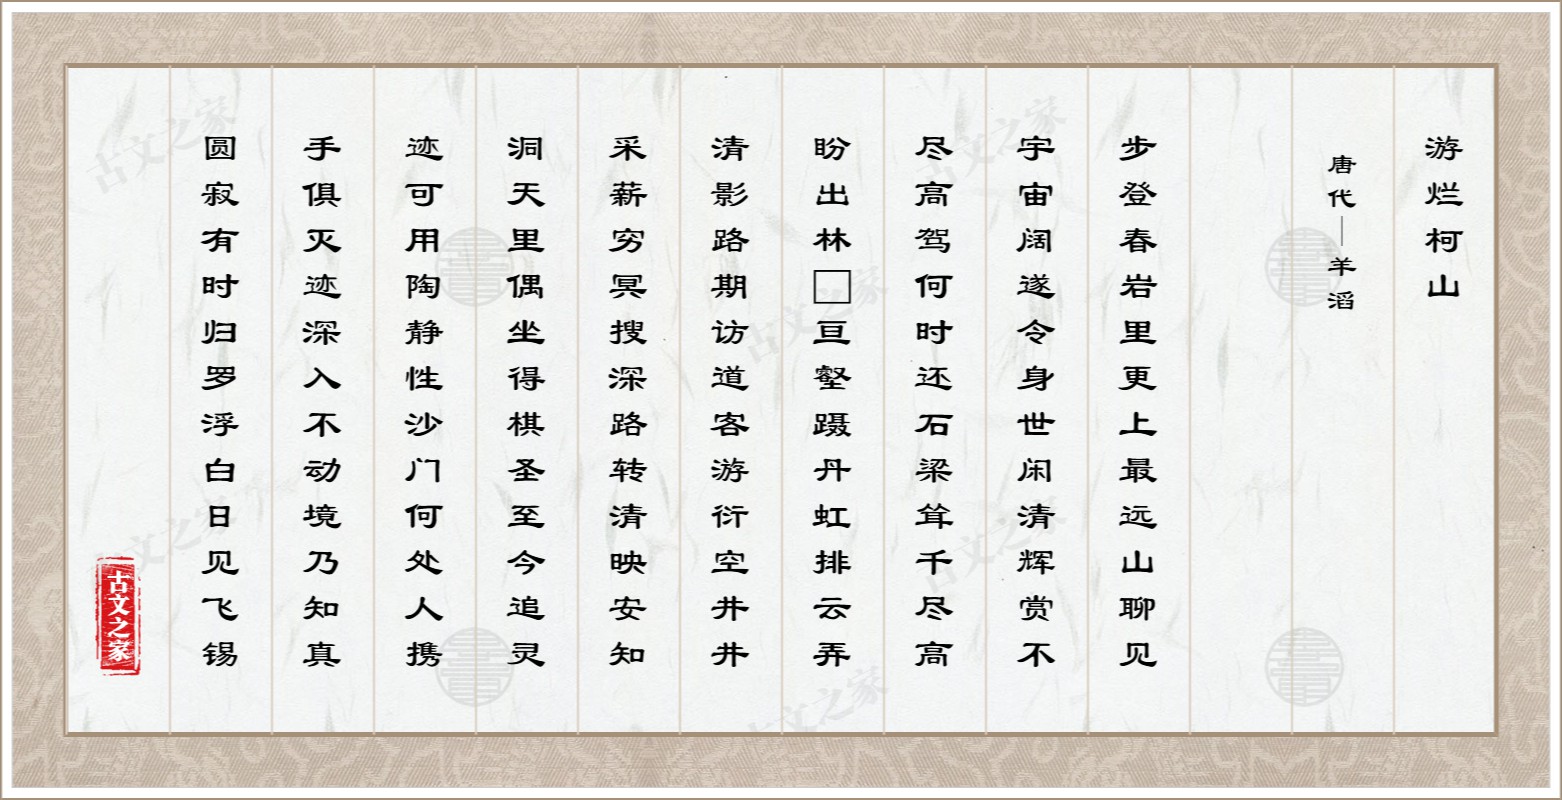 游烂柯山
唐代—羊滔
步登春岩里更上最远山聊见
宇宙阔遂令身世闲清辉赏不
尽高驾何时还石梁耸千尽高
盼出林□亘壑蹑丹虹排云弄
清影路期访道客游衍空井井
采薪穷冥搜深路转清映安知
洞天里偶坐得棋圣至今追灵
迹可用陶静性沙门何处人携
手俱灭迹深入不动境乃知真
圆寂有时归罗浮白日见飞锡
古文之家